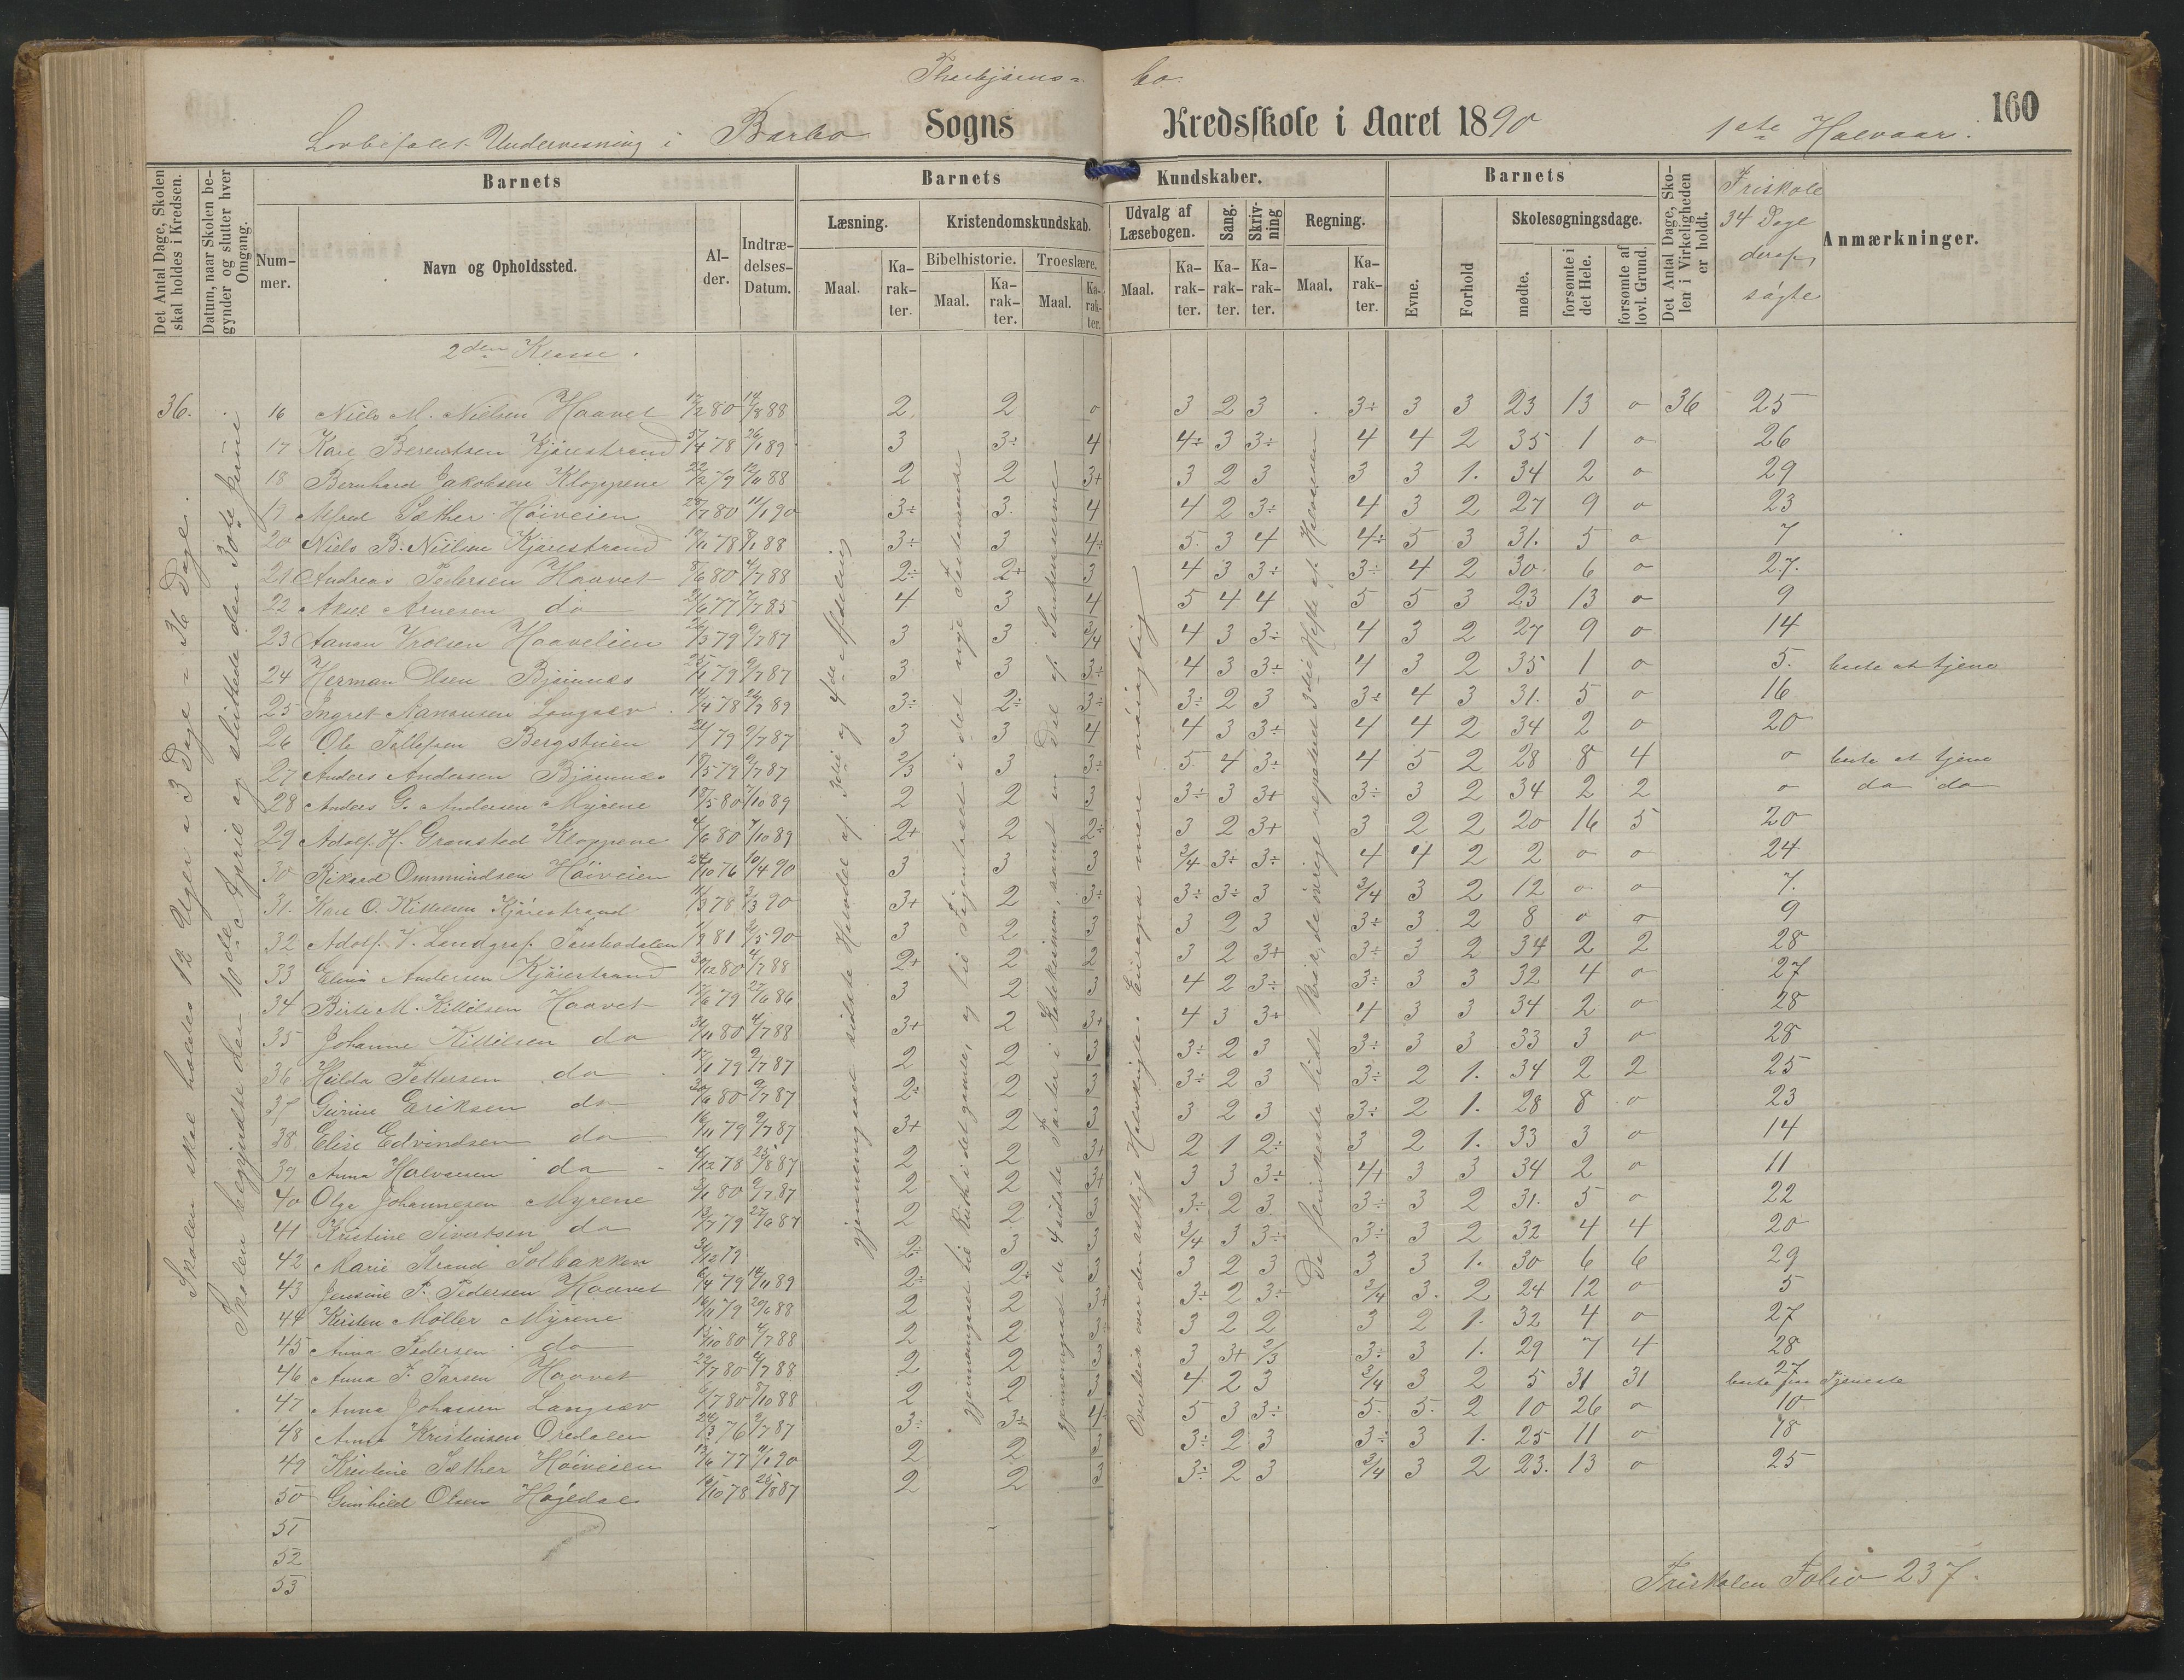 Thorbjørns- bo.
Lovbefalet Undervisning i Barbo Sogns Kredsskole i Aaret 1890 1ste Halvaar. 160
Det Antal Dage, Skolen skal holdes i Kredsen.
Datum, naar Skolen begynder og slutter hver Omgang.
Barnets
Nummer.
Navn og Opholdssted.
Alder.
Indtrædelses-Datum.
Barnets Kundskaber.
Læsning.
Maal.
Karakter.
Kristendomskundskab.
Bibelhistorie.
Maal.
Karakter.
Troeslære.
Maal.
Karakter.
Udvalg af Læsebogen.
Maal.
Karakter.
Sang.
Karakter.
Skrivning
Karakter.
Regning.
Maal.
Karakter.
Barnets
Evne.
Forhold
Skolesøgningsdage.
mødte.
forsømte i det Hele.
forsømte af lovl. Grund.
Det Antal Dage, Skolen i Virkeligheden er holdt.
Friskole 34 Dage deraf søgte
Anmærkninger.
2den Klasse.
36. 16 Niels M. Nielsen Haavet 17/2 80 14/8 88 2 2 0 3 2 3 3+ 3 3 23 13 0 36 25
17 Karl Berentsen Kjærestrand 4 78 26/1 89 3 3÷ 4 4÷ 3 3÷ 4 4 2 35 1 0 26
18 Bernhard Jakobsen Kloppene 22/2 79 12/11 88 2 2 3+ 3 2 3 3 3 1. 34 2 0 29
19 Alfred Sæther Høiveien 28/7 80 11/1 90 3÷ 3. 4 4 2 3÷ 4 3 2 27 9 0 23
20 Niels B. Nielsen Kjærestrand 10/11 78 8/1 88 3÷ 3 4÷ 5 3 4 4÷ 5 3 31. 5 0 7
21 Andreas Pedersen Haavet 8/6 80 4/7 88 2÷ 2+ 3 4 3 3÷ 3÷ 4 2 30. 6 0 27.
22 Aksel Arnesen do 21/6 77 7/7 85 4 3 4 5 4 4 5 5 3 23 13 0 9
23 Aanon Vrolsen Haavelien 26/3 79 9/7 87 3 3 3/4 4 3 3÷ 4 3 2 27 9 0 14
24 Herman Olsen Bjønnæs 25/11 79 9/7 87 3 3 3÷ 4 3 3÷ 4 3 2 35 1 0 5. borte at tjene
25 Ingret Aanonsen Langsæv 14/4 78 26/9 89 3÷ 2÷ 3÷ 3÷ 2 3 3÷ 4 3 31. 5 0 16
26 Ole Tellefsen Bergstuen 24/1 79 9/7 87 3 3 4 4 3 3÷ 4 4 2 34 2 0 20
27 Anders Andersen Bjønnæs 19/5 79 9/7 87 2/3 3 3÷ 5 4 3÷ 4 5 2 28 8 4 0 borte at tjene
28 Anders G. Andersen Myrene 18/5 80 7/10 89 2 2 3 3÷ 3 3+ 3÷ 3 2 34 2 2 0 do do
29 Adolf H. Gransted Kloppene 4/6 80 7/10 89 2+ 2 2÷ 3 2 3+ 3 2 2 20 16 5 20
30 Rikard Ommundsen Høiveien 24/10 76 10/4 90 3 3 3 3/4 3÷ 3÷ 4 4 2 2 0 0 24
31. Karl O. Kittelsen Kjærestrand 11/3 78 3/3 90 3+ 2 3÷ 3÷ 3÷ 3 3/4 3 2 12 0 0 7.
32 Adolf V. Landgraf 81 5 90 3 2 3 3 2 3 3÷ 3 2 8 0 0 9
33 Elina Andersen Kjærestrand 30/12 80 4/7 88 2+ 2 2 3 2 3+ 3÷ 3 2 34 2 2 28
34 Berte M. Kittilsen Haavet 17/6 79 27/6 86 3 2 3 4 2 3÷ 3÷ 3 3 32 4 0 27
35 Johanne Kittilsen do 31/11 80 4/7 88 3+ 2 3+ 4 3 3+ 4 3 3 34 2 0 28
36 Hilda Pettersen do 17/1 79 9/7 87 2 2 3 3÷ 2 3 3÷ 3 3 33 3 0 28
37 Gurine Eriksen do 30/6 80 9/7 87 2÷ 2 3 3÷ 2 3 3÷ 2 1. 34 2 2 25
38 Elise Edvindsen do 16/11 79 9/7 87 3+ 2 3 3 2 3 3÷ 2 1. 28 8 0 23
39 Anna Halvorsen do 4/12 78 25/8 87 2 2 3+ 2 1 2÷ 3 2 1. 33 3 0 14
40 Olga Johannesen Myrene 3/1 80 9/7 87 2 2 3+ 3 3 3÷ 4+ 3 3 34 2 0 11
41 Kristine Sivertsen do 13/7 79 27/6 87 2 2 3 3÷ 2 3 3÷ 3 2 31. 5 0 22
42 Marie Strand Solbakken 31/12 79 2÷ 3 3 3/4 3 3÷ 3÷ 3 2 32 4 4 20
43 Jensine P. Pedersen Haavet 6/4 79 14/11 89 2÷ 2÷ 3 3 2 3 3 3 1. 30 6 6 29
44 Kirsten Møller Myrene 16/11 79 20/6 88 2 2 3+ 3÷ 2 3÷ 3/4 3. 2 24 12 0 5
45 Anna Pedersen do 15/10 80 4/7 88 2 2 3÷ 3 2 2 3 2 1. 32 4 0 27
46 Anna T. Tarsen Haavet 22/7 80 4/7 88 2 2 3 3 3+ 2/3 3÷ 3 1. 29 7 4 28
47 Anna Johansen Langsæv 6/7 80 8/10 88 2 2 3 4 2 3 3/4 3 2 5 31 31 27 borte paa Tjeneste
48 Anna Kristensen Øredalen 24/3 76 9/7 87 3÷ 3÷ 4÷ 5 3 3÷ 5. 5. 2 10 26 0 10
49 Kristine Sæther Høiveien 13/6 77 11/1 90 2 2 3 3÷ 2 3 3÷ 3 1. 25 11 0 18
50 Gunhild Olsen Høgedal 15/10 78 25/8 87 2 2 3 3÷ 2 3 3/4 3 2 23. 13 0 25
51
52
53
Skolen skal holdes 12 Uger a 3 Dage = 36 Dage.
Skolen begyndte den 10de April og sluttede den 30te Juni
gjennemgaaet sidste Halvdel af 3die og 4de Afdeling
gjennemgaaet til Ruth i det gamle, og til i det nye Testamente
gjennemgaaet de 4 sidste Parter i Katekismen, samt en Del af
Overleir over den østlige Halvkugle. Europa mere nøiagtig
De flinkeste lidt Brøk, de øvrige 3die Hefte af Halvorsen
Friskolen Folio 237.